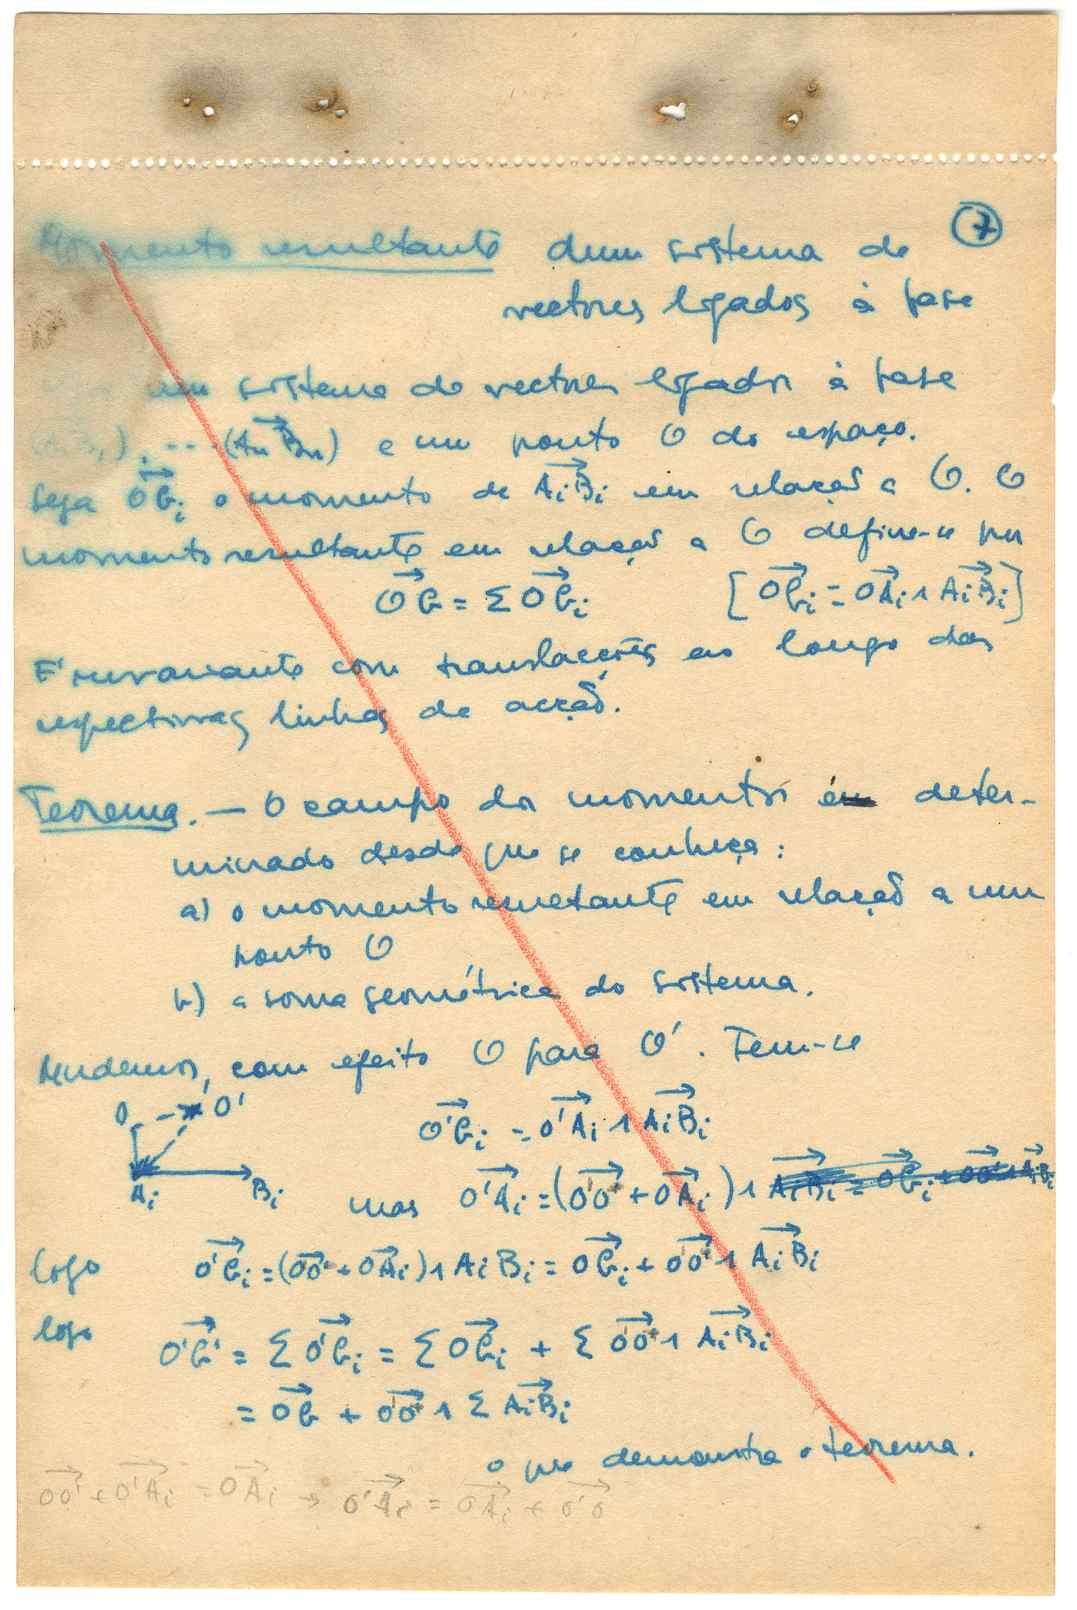 7
Momento resultante dum sistema de
vectores ligados à base
um sistema de vectores ligados à base
(A₁B₁), ... (AₙBₙ) e um ponto O do espaço.
Seja OG⃗ᵢ o momento de AᵢBᵢ⃗ em relação a O. O
momento resultante em relação a O define-se por
OG⃗ = Σ OG⃗ᵢ [OG⃗ᵢ = OA⃗ᵢ ∧ AᵢBᵢ⃗]
É invariante com translacções ao longo das
respectivas linhas de acção.
Teorema. — O campo dos momentos é deter-
minado desde que se conheça:
a) o momento resultante em relação a um
ponto O
b) a soma geométrica do sistema.
Mudemos, com efeito O para O'. Tem-se
O O'
O'G⃗ᵢ = O'A⃗ᵢ ∧ AᵢBᵢ⃗
Aᵢ Bᵢ
mas O'A⃗ᵢ = (OO'⃗ + OA⃗ᵢ) ∧ AᵢBᵢ⃗ = OG⃗ᵢ + OO'⃗ ∧ AᵢBᵢ⃗
Logo O'G⃗ᵢ = (OO'⃗ + OA⃗ᵢ) ∧ AᵢBᵢ = OG⃗ᵢ + OO'⃗ ∧ AᵢBᵢ⃗
logo O'G'⃗ = Σ O'G⃗ᵢ = Σ OG⃗ᵢ + Σ OO'⃗ ∧ AᵢBᵢ⃗
= OG⃗ + OO'⃗ ∧ Σ AᵢBᵢ⃗
o que demonstra o teorema.
OO'⃗ + O'A⃗ᵢ = OA⃗ᵢ → O'A⃗ᵢ = OA⃗ᵢ + O'O⃗